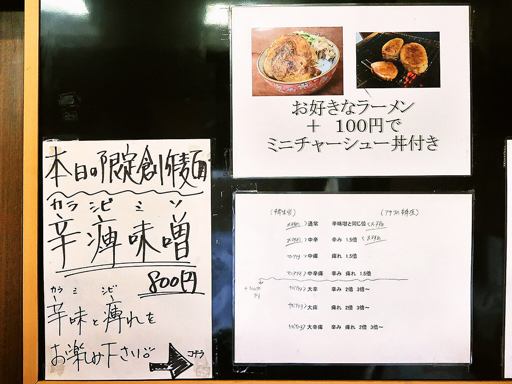 本日の限定創作麺
カラ シビ ミ ソ
辛痺味噌
800円
カラ ミ シビ
辛味と痺れを
お楽しみ下さい。
コチラ
お好きなラーメン
＋ 100円で
ミニチャーシュー丼付き
通常 辛味噌と同じ位
中辛 辛み 1.5倍
中痺 痺れ 1.5倍
中辛痺 辛み 痺れ 1.5倍
大辛 辛み 2倍 3倍～
大痺 痺れ 2倍 3倍～
大辛痺 辛み 痺れ 2倍 3倍～